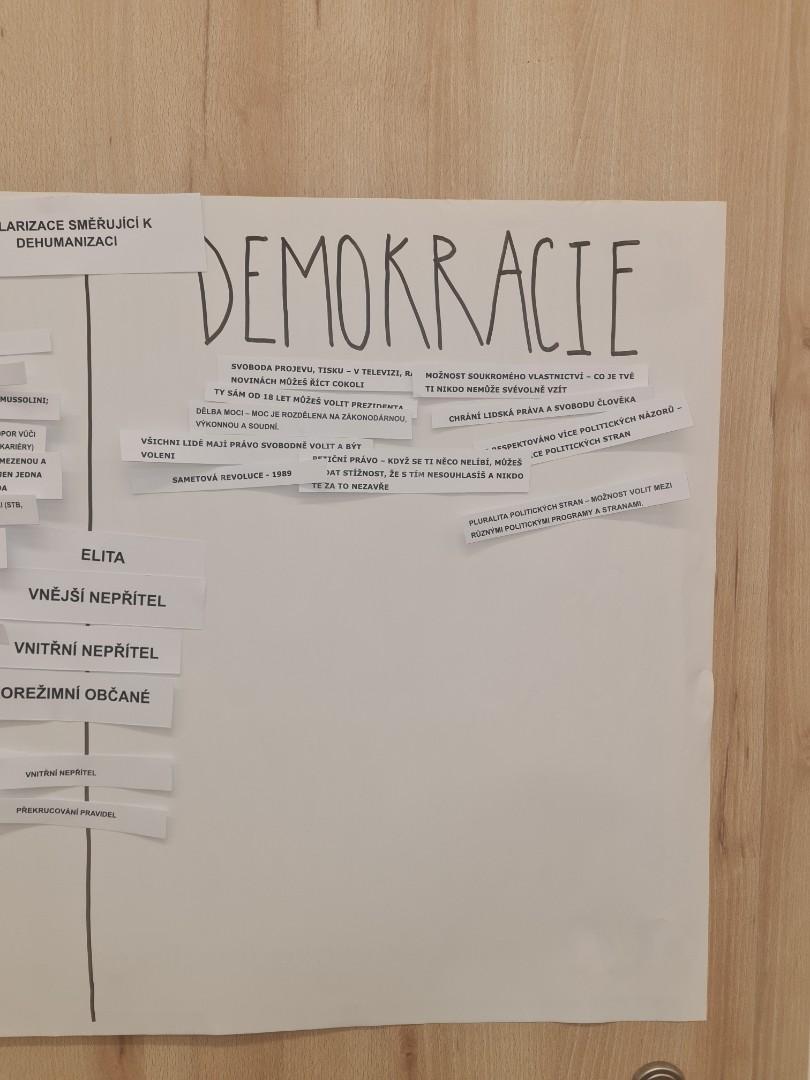 LARIZACE SMĚŘUJÍCÍ K
DEHUMANIZACI
DEMOKRACIE
SVOBODA PROJEVU, TISKU – V TELEVIZI,
NOVINÁCH MŮŽEŠ ŘÍCT COKOLI
MOŽNOST SOUKROMÉHO VLASTNICTVÍ – CO JE TVÉ
TI NIKDO NEMŮŽE SVÉVOLNĚ VZÍT
TY SÁM OD 18 LET MŮŽEŠ VOLIT PREZIDENTA
DĚLBA MOCI – MOC JE ROZDĚLENA NA ZÁKONODÁRNOU,
VÝKONNOU A SOUDNÍ.
CHRÁNÍ LIDSKÁ PRÁVA A SVOBODU ČLOVĚKA
RESPEKTOVÁNO VÍCE POLITICKÝCH NÁZORŮ –
CE POLITICKÝCH STRAN
VŠICHNI LIDÉ MAJÍ PRÁVO SVOBODNĚ VOLIT A BÝT
VOLENI
PETIČNÍ PRÁVO – KDYŽ SE TI NĚCO NELÍBÍ, MŮŽEŠ
DAT STÍŽNOST, ŽE S TÍM NESOUHLASÍŠ A NIKDO
TE ZA TO NEZAVŘE
SAMETOVÁ REVOLUCE - 1989
PLURALITA POLITICKÝCH STRAN – MOŽNOST VOLIT MEZI
RŮZNÝMI POLITICKÝMI PROGRAMY A STRANAMI.
MUSSOLINI;
ODPOR VŮČI
KARIÉRY)
MEZENOU A
JEN JEDNA
DA
I (STB,
ELITA
VNĚJŠÍ NEPŘÍTEL
VNITŘNÍ NEPŘÍTEL
OREŽIMNÍ OBČANÉ
VNITŘNÍ NEPŘÍTEL
PŘEKRUCOVÁNÍ PRAVIDEL